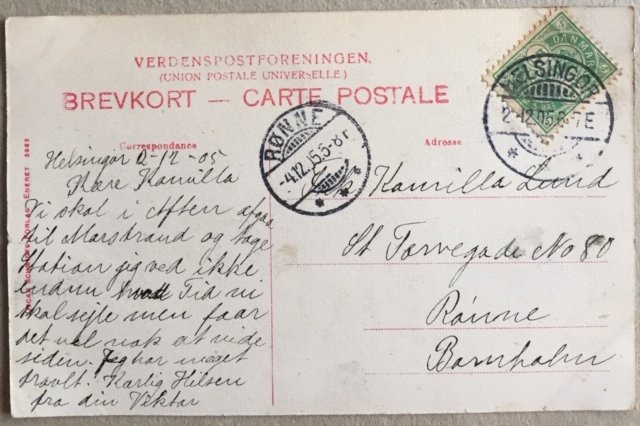 VERDENSPOSTFORENINGEN.
(UNION POSTALE UNIVERSELLE)
BREVKORT — CARTE POSTALE
Correspondance
Adresse
DANMARK
HELSINGØR
2.12.05 7E
RØNNE
-4.12.05.5-8 F
Helsingør 2-12-05
Kære Kamilla
Vi skal i Aften afgaa
til Marstrand og tage
Station jeg ved ikke
endnu hvad Tid vi
skal sejle men faar
det vel nok at vide
siden. Jeg har meget
travlt. Kærlig Hilsen
fra din Viktor
Kamilla Lund
St Torvegade No 80
Rønne
Bornholm